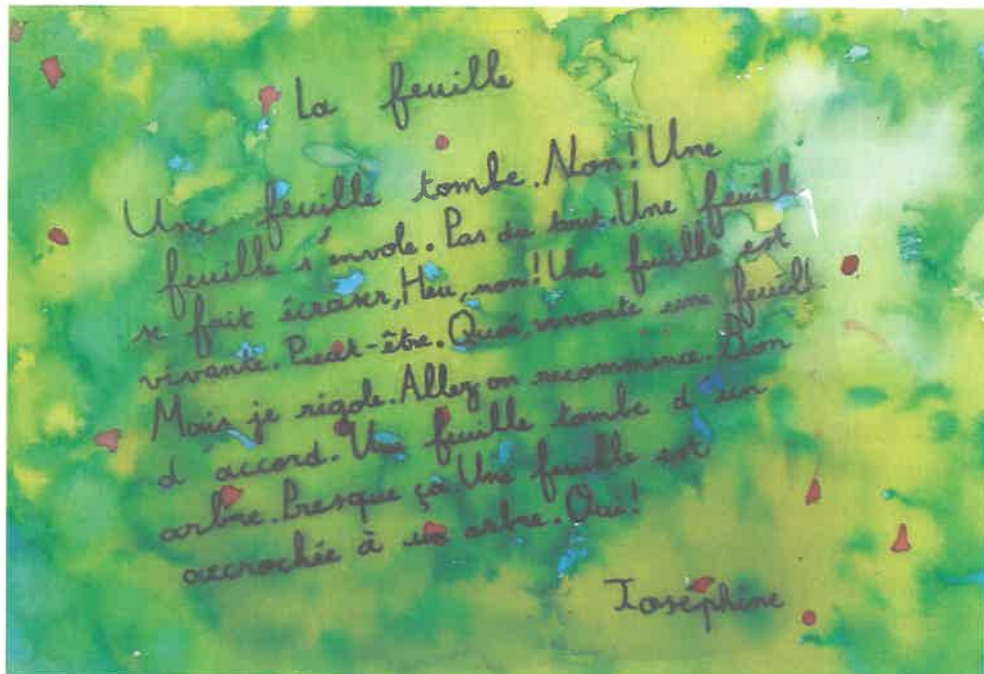 La feuille
Une feuille tombe. Non! Une
feuille s'envole. Pas du tout. Une feuille
se fait écraser, Heu, non! Une feuille est
vivante. Peut-être. Quoi, vivante une feuille
Mais je rigole. Allez on recommence. Bon
d accord. Une feuille tombe d un
arbre. Presque ça. Une feuille est
accrochée à un arbre. Oui!
Joséphine